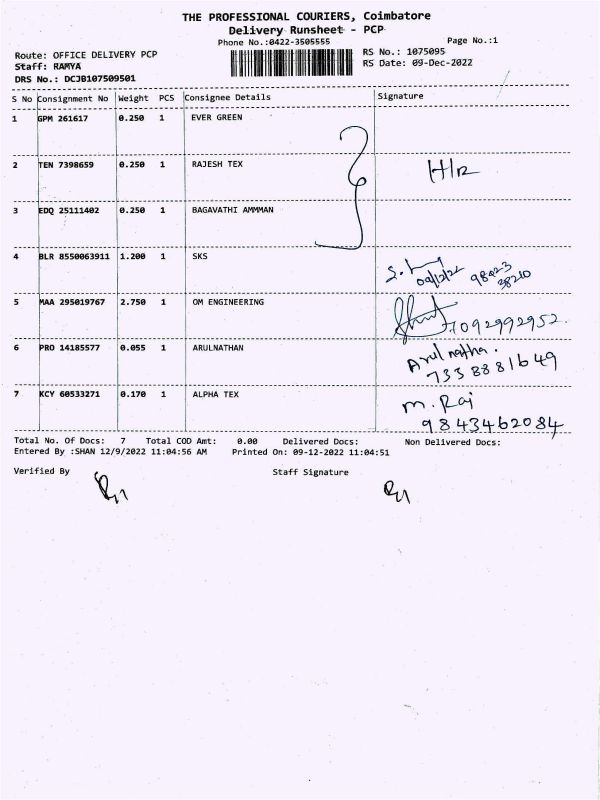 THE PROFESSIONAL COURIERS, Coimbatore
Delivery Runsheet - PCP
Phone No.:0422-3505555
Page No.:1
Route: OFFICE DELIVERY PCP
RS No.: 1075095
Staff: RAMYA
RS Date: 09-Dec-2022
DRS No.: DCJB107509501
S No Consignment No Weight PCS Consignee Details Signature
1 GPM 261617 0.250 1 EVER GREEN
2 TEN 7398659 0.250 1 RAJESH TEX H/R
3 EDQ 25111402 0.250 1 BAGAVATHI AMMMAN
4 BLR 8550063911 1.200 1 SKS
09/12/22 98423
38210
5 MAA 295019767 2.750 1 OM ENGINEERING
7092992952.
6 PRO 14185577 0.055 1 ARULNATHAN Arul natha.
7338881649
7 KCY 60533271 0.170 1 ALPHA TEX M. Raj
9843462084
Total No. Of Docs: 7 Total COD Amt: 0.00 Delivered Docs: Non Delivered Docs:
Entered By :SHAN 12/9/2022 11:04:56 AM Printed On: 09-12-2022 11:04:51
Verified By Staff Signature